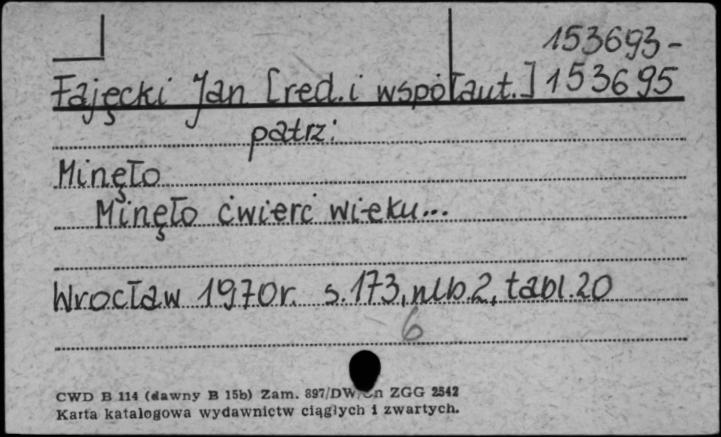 153693-
Łajęcki Jan [red. i współaut.] 153695
patrz:
Minęło
Minęło ćwierć wieku...
Wrocław 1970r. s.173, nlb.2, tabl.20
6
CWD B 114 (dawny B 15b) Zam. 897/DW/ ZGG 2542
Karta katalogowa wydawnictw ciągłych i zwartych.